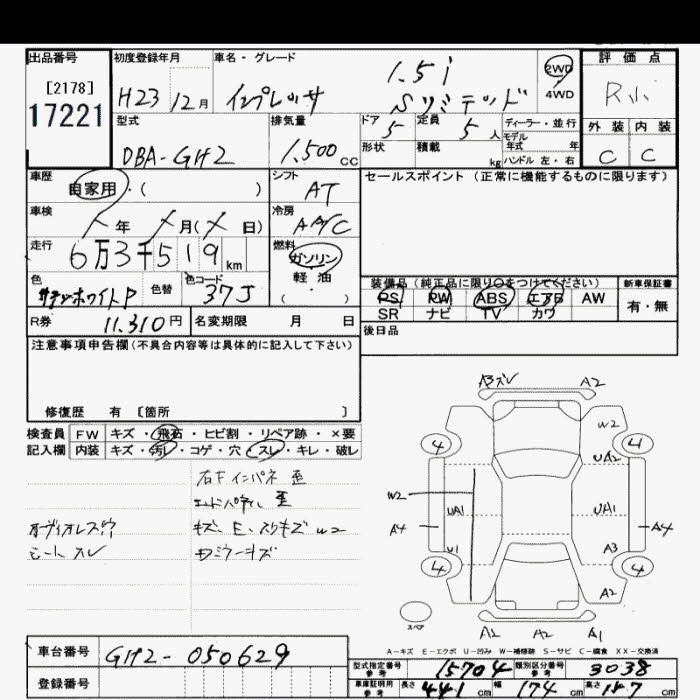 出品番号 初度登録年月 車名・グレード 評価点
[2178] 1.5i 2WD
17221 H23 12月 インプレッサ Sリミテッド 4WD R
型式 排気量 ドア 定員 ディーラー・並行 外装 内装
DBA-GH2 1.500CC 5 5人 モデル年式 年 C C
形状 積載 kg ハンドル 左・右
車歴 シフト セールスポイント(正常に機能するものに限ります)
自家用・( ) AT
車検 冷房
年 月( 日) AA/C
走行 燃料
6万3千519km ガソリン
色 色替 色コード 軽油
サテンホワイトP 37J ( )
装備品(純正品に限り○をつけてください) 新車保証書
PS PW ABS エアB AW 有・無
SR ナビ TV カワ
R券 11.310円 名変期限 月 日 後日品
注意事項申告欄(不具合内容等は具体的に記入して下さい)
修復歴 有 〔箇所 〕
検査員 FW キズ・飛石・ヒビ割・リペア跡・×要
記入欄 内装 キズ・汚レ・コゲ・穴・スレ・キレ・破レ
右Fインパネ 歪
エンドパネル 歪
オーディオレス穴 キズ、E、スリキズ W2
シート スレ ドアミラーキズ
A3ズレ A2
W2
4 4
UA2
W2
UA1 UA1
A4 A4
U1 A3
4 4
A2
スペア
A2 A2 A1
A-キズ E-エクボ U-凹み W-補修跡 S-サビ C-腐食 XX-交換済
車台番号 GH2-050629
型式指定番号 参考 15704 類別区分番号 参考 3038
登録番号
車庫証明用 参考 長さ 441cm 幅 174cm 高さ 147cm